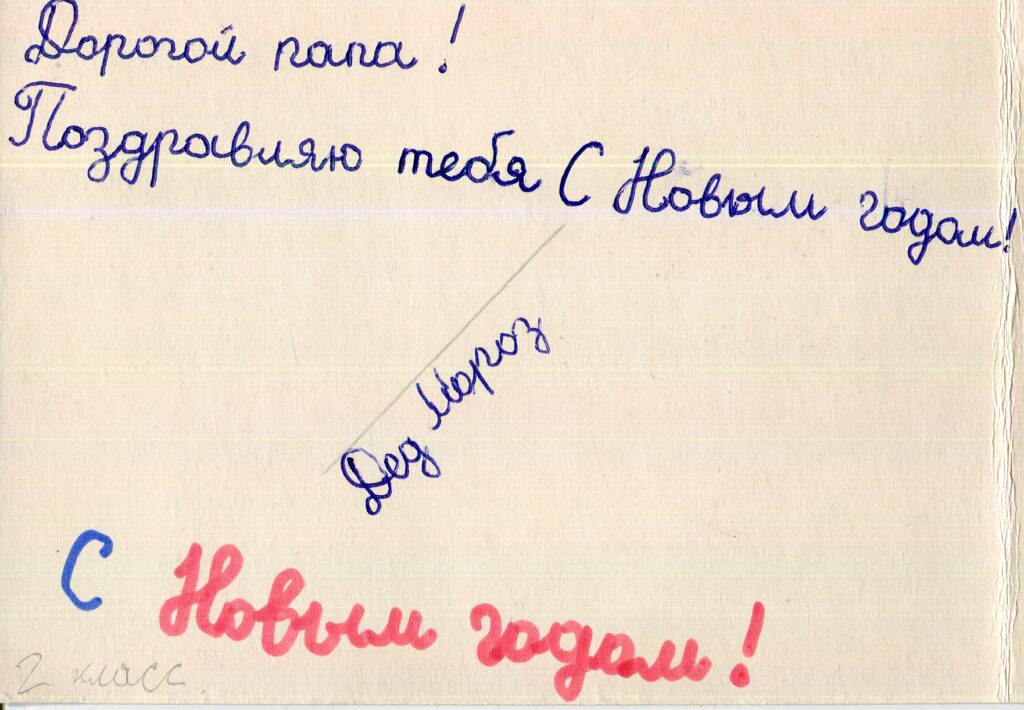 Дорогой папа!
Поздравляю тебя С Новым годом!
Дед Мороз
С Новым годом!
2 класс.